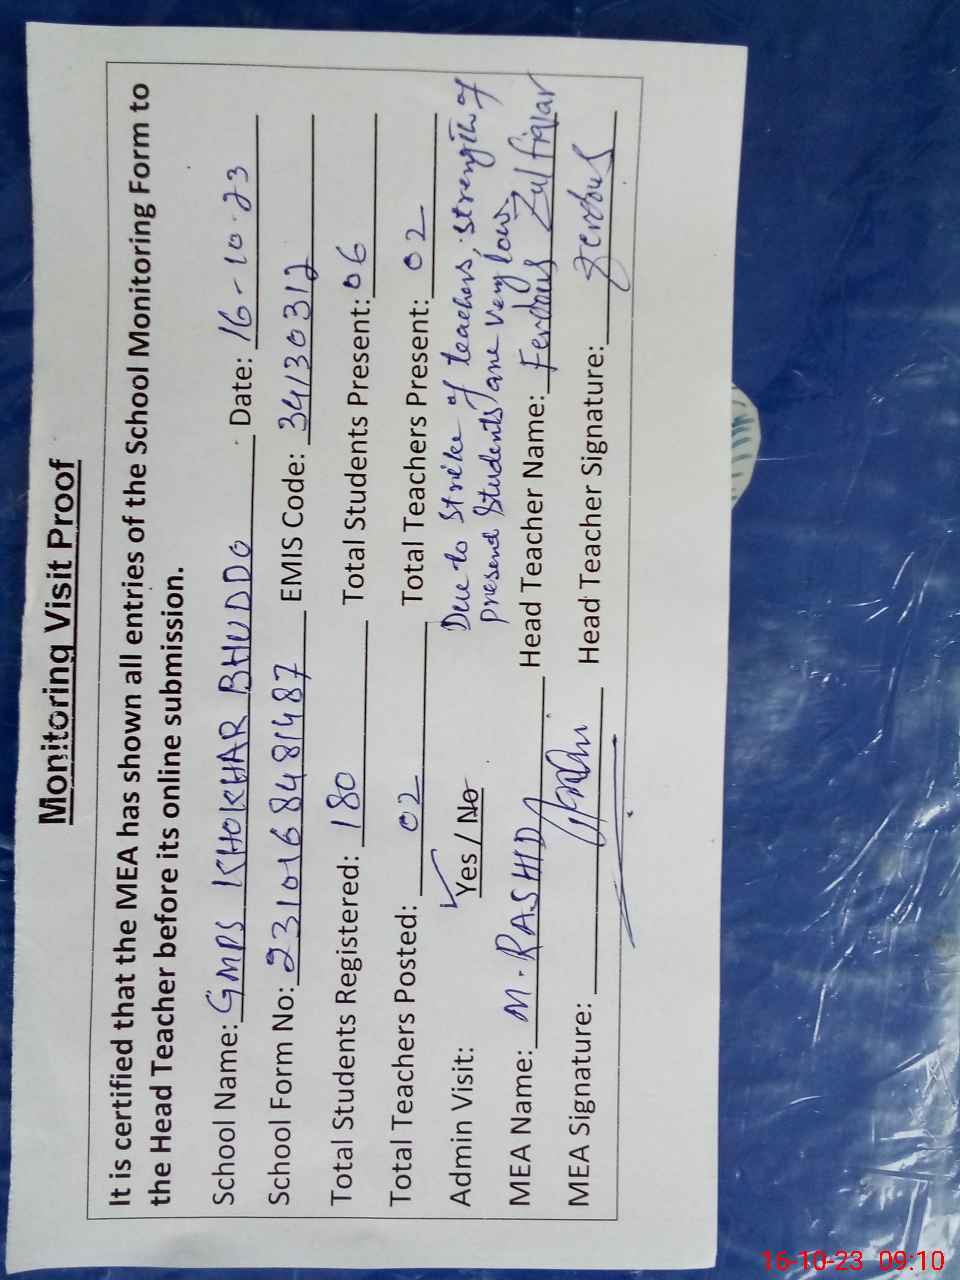 Monitoring Visit Proof
It is certified that the MEA has shown all entries of the School Monitoring Form to
the Head Teacher before its online submission.
School Name: GMPS KHOKHAR BHUDDO Date: 16-10-23
School Form No: 2310168481487 EMIS Code: 34130312
Total Students Registered: 180 Total Students Present: 06
Total Teachers Posted: 02 Total Teachers Present: 02
Admin Visit: Yes / No Due to strike of teachers, strength of
present students are very low.
MEA Name: M. RASHID Head Teacher Name: Ferdous Zulfiqar
MEA Signature: Head Teacher Signature: Ferdous
16-10-23 09:10